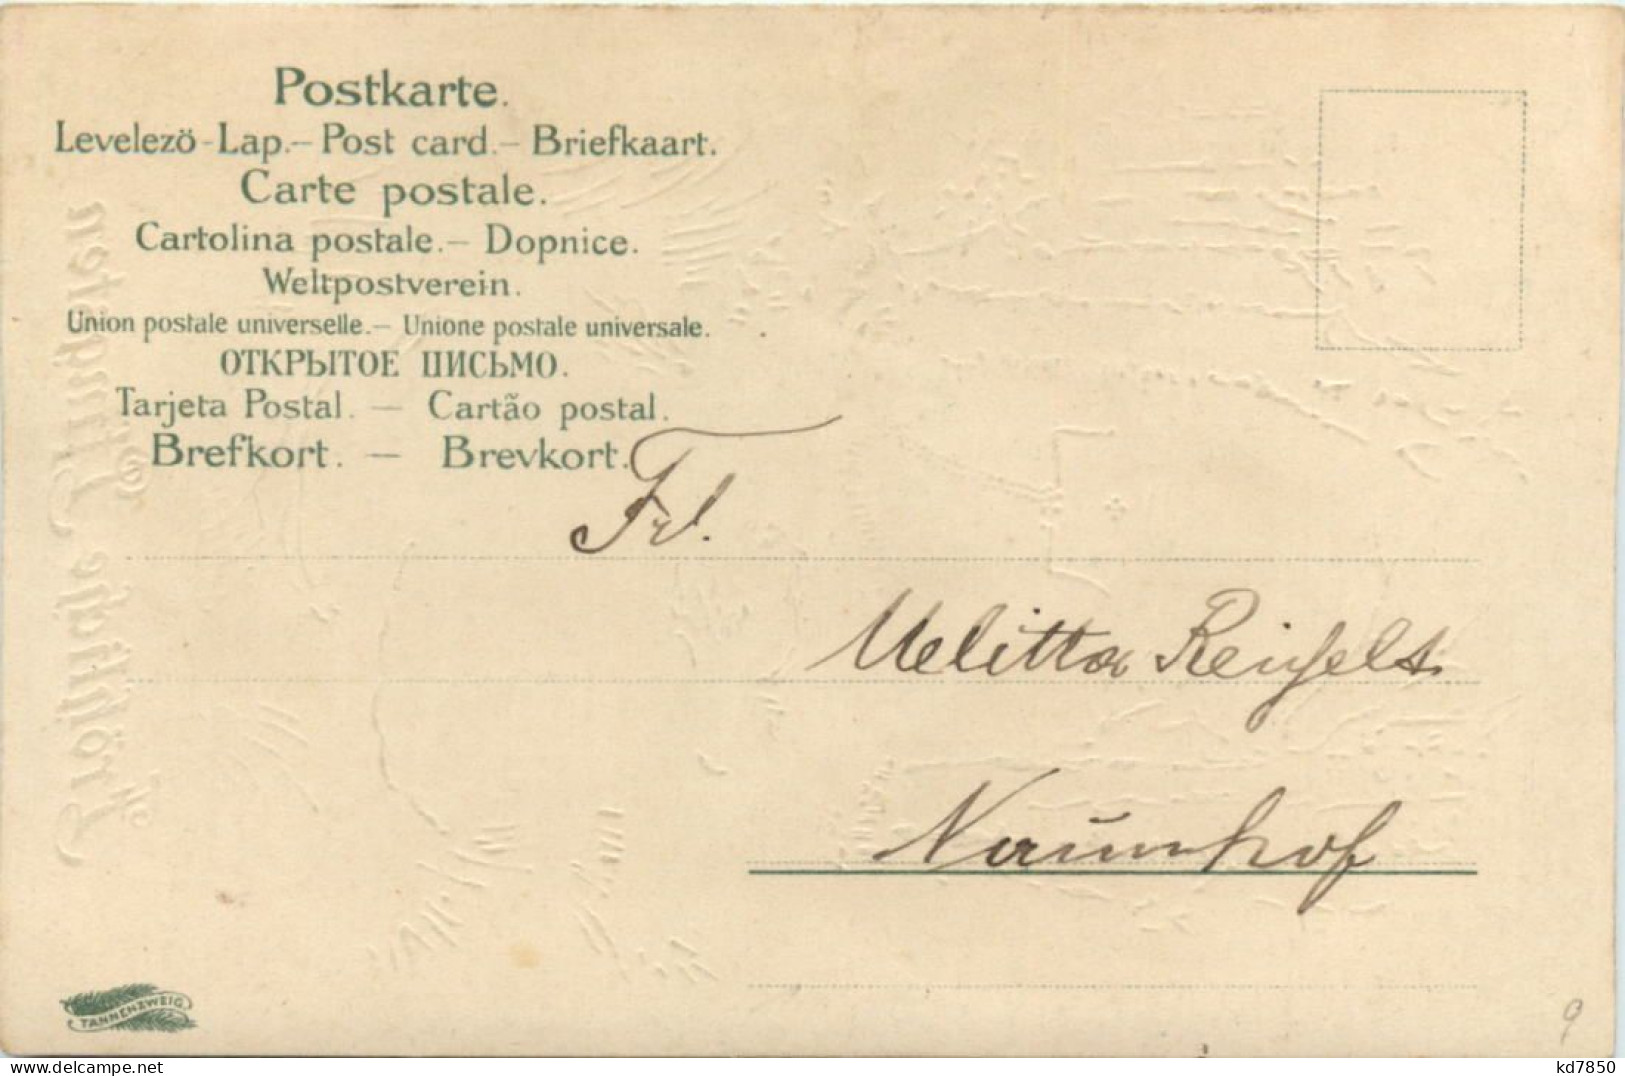 Postkarte.
Levelezö-Lap.– Post card.– Briefkaart.
Carte postale.
Cartolina postale.– Dopnice.
Weltpostverein.
Union postale universelle.– Unione postale universale.
ОТКРЫТОЕ ПИСЬМО.
Tarjeta Postal. – Cartão postal.
Brefkort. – Brevkort.
Fröhliche Pfingsten
Frl.
Melitta Reichelt
Naunhof
TANNENZWEIG
9
kd7850